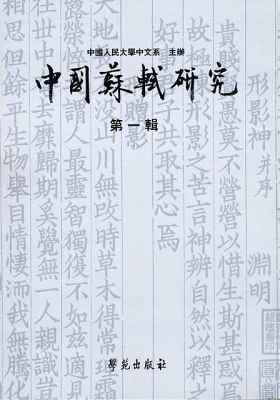 中國人民大學中文系　主辦
中國蘇軾研究
第一輯
學苑出版社
形影神 并序
淵明
愚莫不營營以惜生斯甚惑焉
形影之苦言神辨自然以釋之
子共取其心焉
贈影
改時草木得常
謂人最靈智獨復不如茲適見
在世中奄去靡歸期奚覺無一人
思但餘平生物舉目情悽洏我無騰化